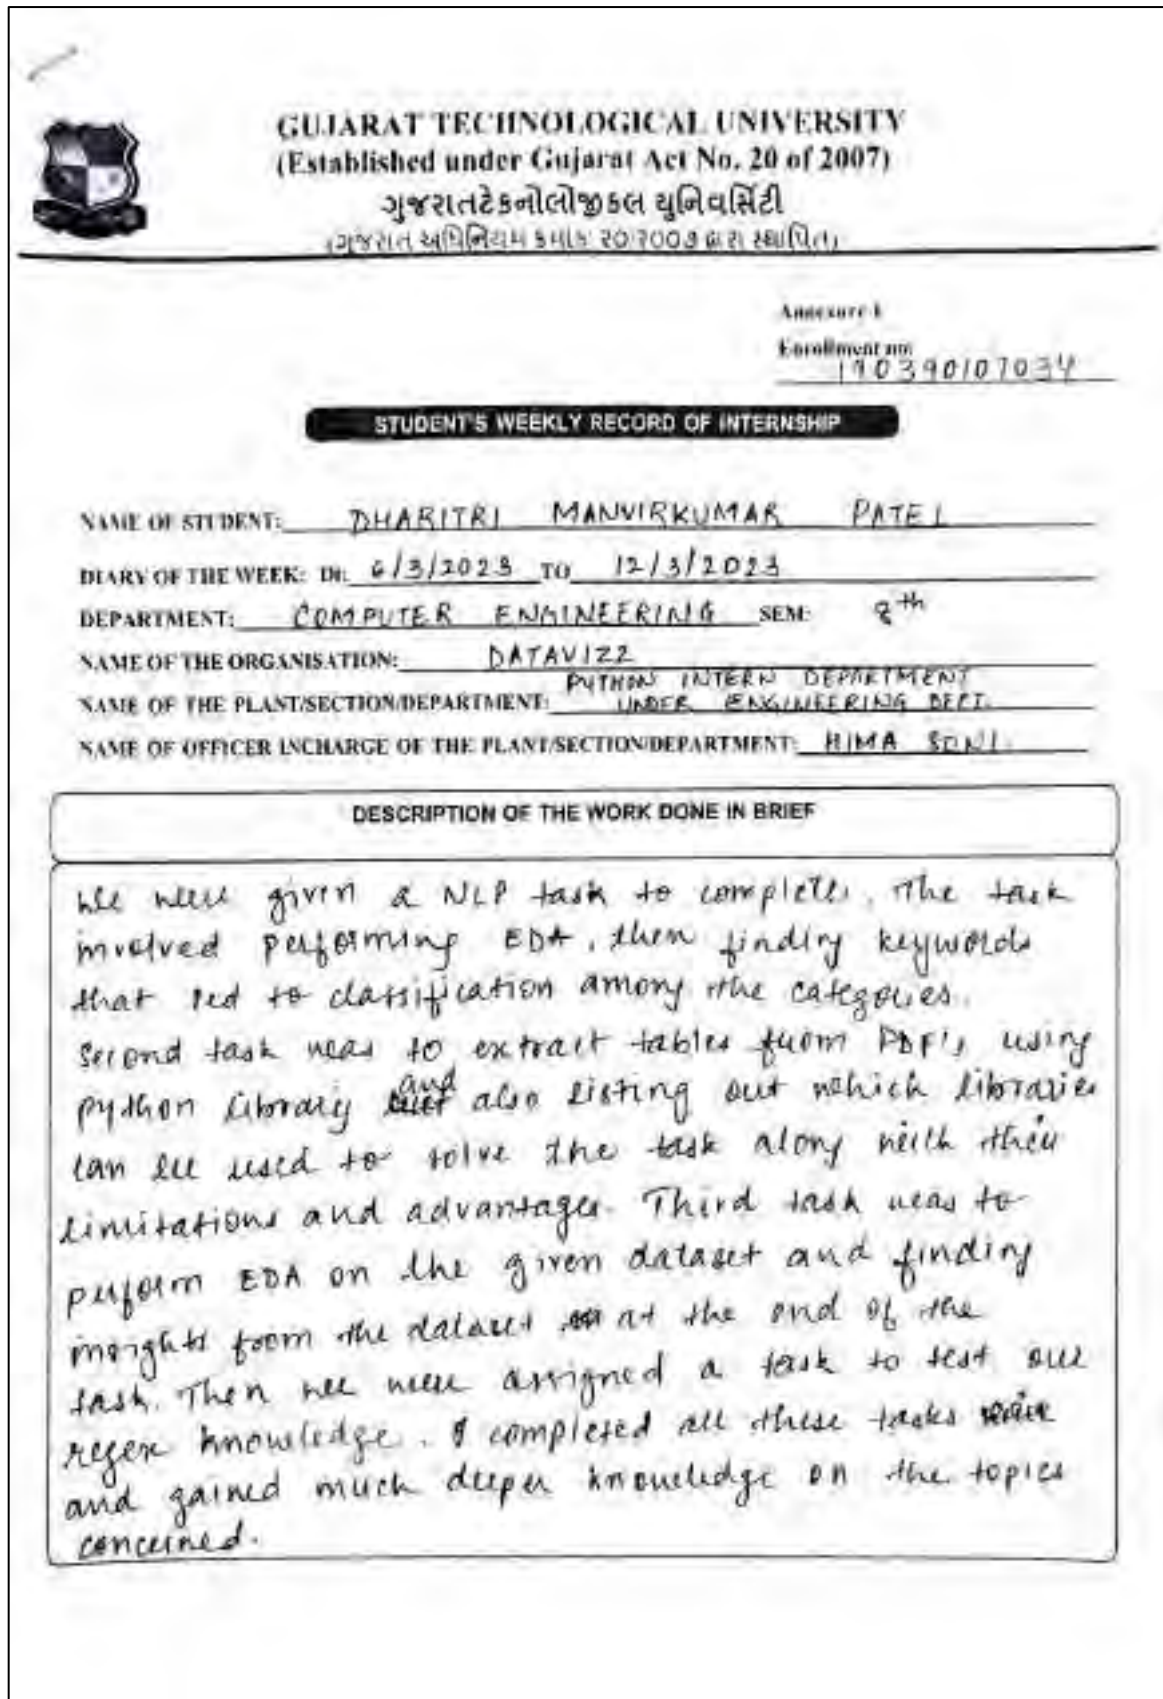 GUJARAT TECHNOLOGICAL UNIVERSITY
(Established under Gujarat Act No. 20 of 2007)
ગુજરાતટેકનોલોજીકલ યુનિવર્સિટી
(ગુજરાત અધિનિયમ ક્રમાંક: ૨૦/૨૦૦૭ દ્વારા સ્થાપિત)
Annexure 1
Enrollment no:
190390107034
STUDENT'S WEEKLY RECORD OF INTERNSHIP
NAME OF STUDENT: DHARITRI MANVIRKUMAR PATEL
DIARY OF THE WEEK: Dt: 6/3/2023 TO 12/3/2023
DEPARTMENT: COMPUTER ENGINEERING SEM: 8th
NAME OF THE ORGANISATION: DATAVIZZ
PYTHON INTERN DEPARTMENT
NAME OF THE PLANT/SECTION/DEPARTMENT: UNDER ENGINEERING DEPT.
NAME OF OFFICER INCHARGE OF THE PLANT/SECTION/DEPARTMENT: HIMA SONI
DESCRIPTION OF THE WORK DONE IN BRIEF
We were given a NLP task to complete. The task
involved performing EDA, then finding keywords
that led to classification among the categories.
Second task was to extract tables from PDF's using
python library and also listing out which libraries
can be used to solve the task along with their
limitations and advantages. Third task was to
perform EDA on the given dataset and finding
insights from the dataset at the end of the
task. Then we were assigned a task to test our
regex knowledge. I completed all these tasks
and gained much deeper knowledge on the topics
concerned.